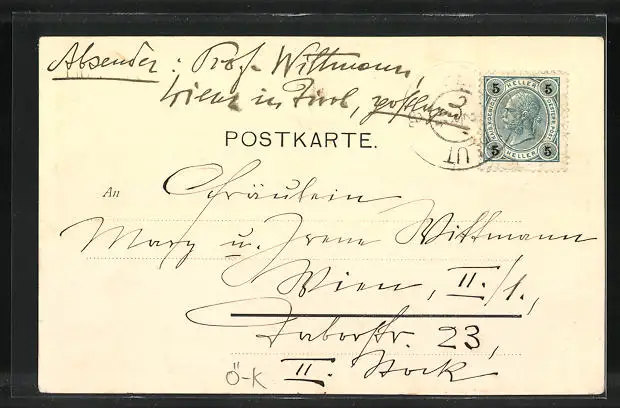 Absender: Prof. Wittmann,
Lienz in Tirol, postlagernd
5 HELLER 5
5 HELLER 5
UT
POSTKARTE.
An Fräulein
Mary u. Irene Wittmann
Wien, II./1.,
Taborstr. 23,
II. Stock
Ö-K